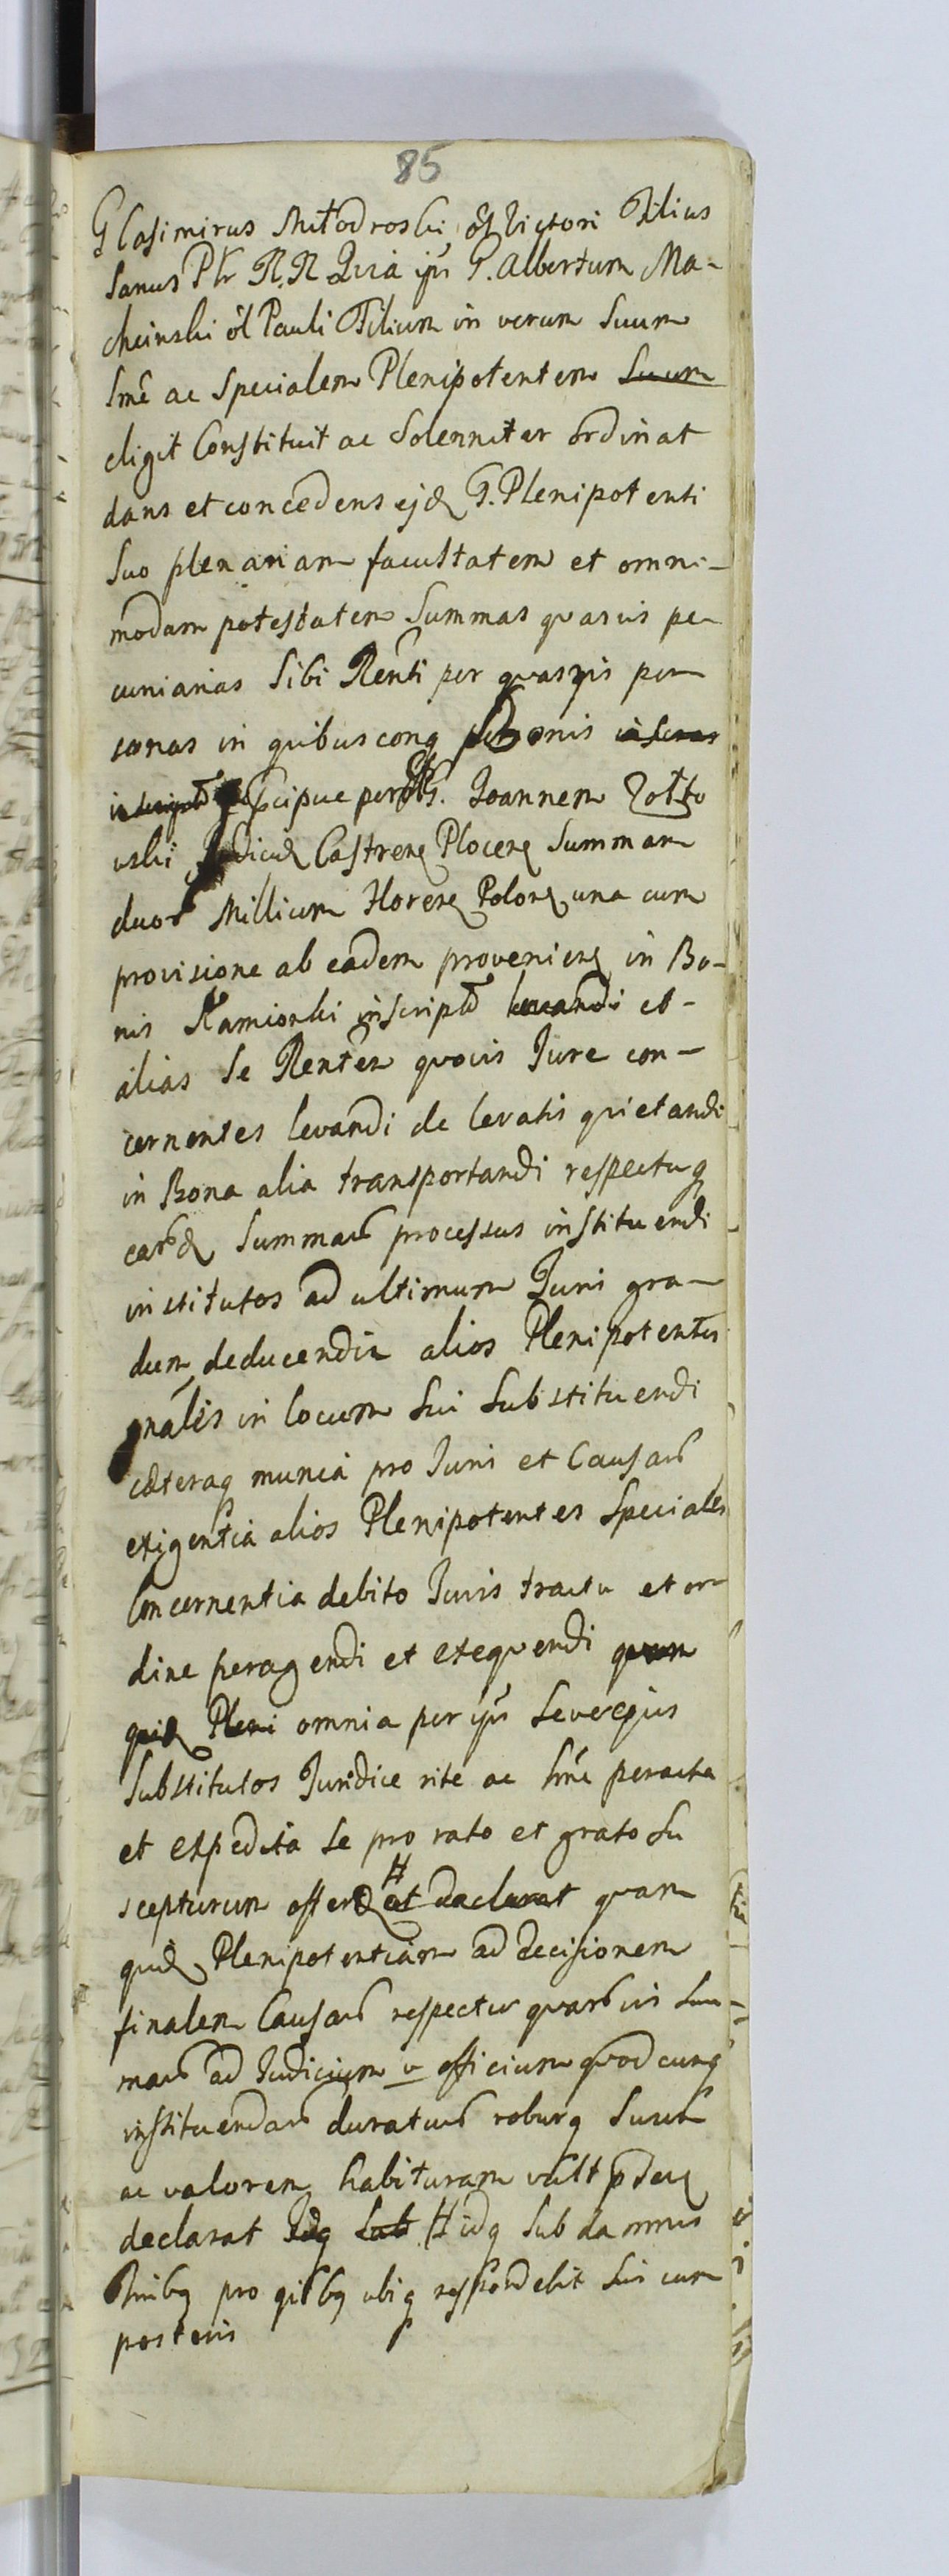 85
G Casimirus Mŧodroski ol Victori Filius
Sanus Ptr R. R. Quia ips G. Albertum Ma-
cheinski ol Pauli Filium in verum Suum
lmē ac Specialem Plenipotentem Suum
eligit Constituit ac Solenniter ordinat
dans et concedens ejd G. Plenipotenti
Suo plenariam facultatem et omni-
modam potestatem Summas quasvis pe-
cuniarias Sibi Renti per quasvis per
sonas in quibuscunq Bonis
precipue per G. Joannem Zotto
wski Judicem Castrens Plocens Summam
duor Millium Floren Polon una cum
provisione ab eadem provenien in Bo-
nis Kamionki inscript levandi et
alias Se Renten quovis Jure con-
cernentes levandi de levatis quietandi
in Bona alia transportandi respectuq
eard Summar processus instituendi
institutos ad ultimum Juris gra-
dum deducendi alios Plenipotentes
gnales in locum Sui Substituendi
caeteraq munia pro Juris et Causar
exigentia alios Plenipotentes Speciales
Concernentia debito Juris tractu et or
dine peragendi et exequendi quam
quid Pleni omnia per ips Seu ejus
Substitutos Juridice rite ac lmē peracta
et expedita Se pro rato et grato Su
scepturum offerd # et declarat quam
quid Plenipotentiam ad decisionem
finalem Causar respectu quarvis Sum-
mar ad Judicium v officium quodcunq
instituendar duratur roburq Suum
ac valorem habituram vult
declarat Idq Sub # idq Sub damnis
pro qibq ubiq respondebit Sui cum
posteris